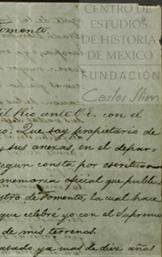 CENTRO DE
ESTUDIOS
DE HISTORIA
DE MEXICO
FUNDACIÓN
Carlos Slim
omento.
el Rio ante U. con el
o. Que soy propietario de
sus anexas, en el depar-
segun consta por escritura
memoria oficial que publi
stro de Fomento, la cual hace
que celebré yo con el Supremo
de mis terrenos
pasado ya mas de diez años